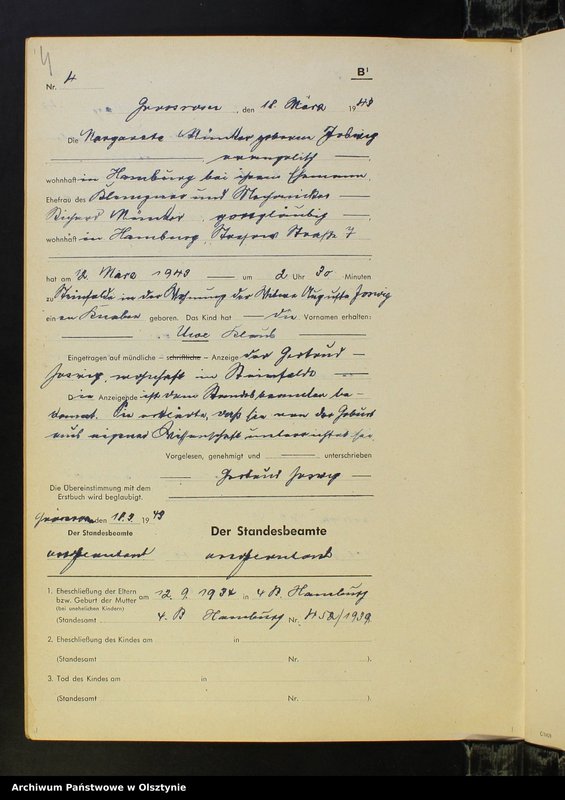 4
Nr. 4
B¹
Grossrosen, den 18. März 1943
Die Margarete Münter, geborene Joswig
evangelisch
wohnhaft in Hamburg bei ihrem Ehemann,
Ehefrau des Klempners und Mechanikers
Richard Münter, gottgläubig
wohnhaft in Hamburg, Straße 7
hat am 12. März 1943 um 2 Uhr 30 Minuten
zu Steinfelde in der Wohnung der Witwe Auguste Joswig
einen Knaben geboren. Das Kind hat die Vornamen erhalten:
Uwe Klaus
Eingetragen auf mündliche – schriftliche – Anzeige der Gertrud
Joswig, wohnhaft in Steinfelde
Die Anzeigende ist dem Standesbeamten be-
kannt. Sie erklärte, daß sie von der Geburt
aus eigener Wissenschaft unterrichtet sei.
Vorgelesen, genehmigt und unterschrieben
Gertrud Joswig
Die Übereinstimmung mit dem
Erstbuch wird beglaubigt.
Grossrosen, den 18.3. 1943
Der Standesbeamte
Der Standesbeamte
1. Eheschließung der Eltern
bzw. Geburt der Mutter am 12. 9. 1934 in 4 B Hamburg
(bei unehelichen Kindern)
(Standesamt 4. B Hamburg Nr.
2. Eheschließung des Kindes am in
(Standesamt Nr. ).
3. Tod des Kindes am in
(Standesamt Nr. ).
Archiwum Państwowe w Olsztynie